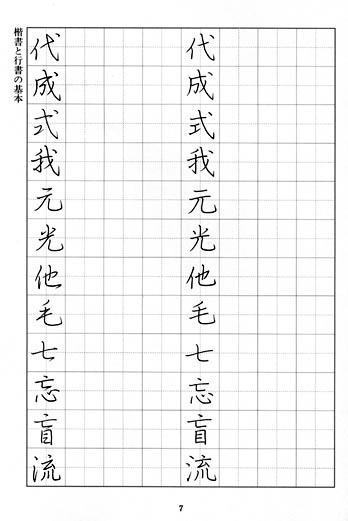 代成式我元光他毛七忘盲流
代成式我元光他毛七忘盲流
楷書と行書の基本
7